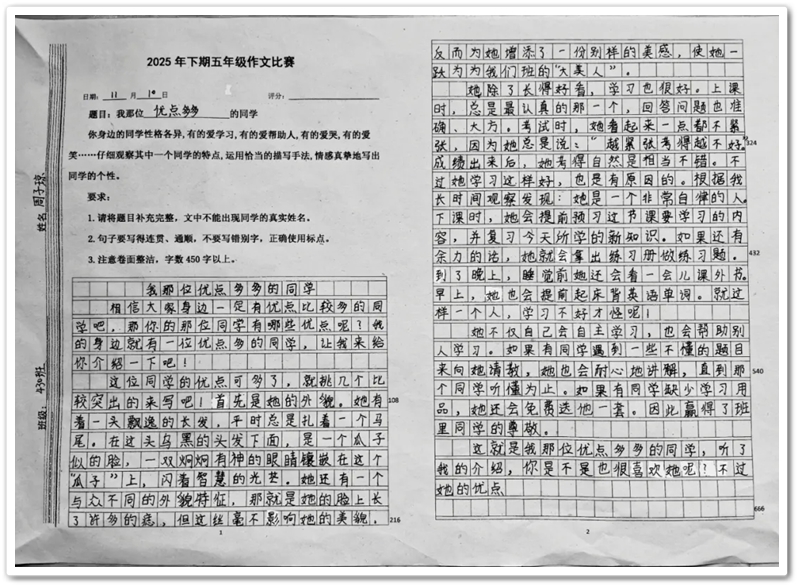 2025年下期五年级作文比赛
日期: 11 月 10 日 评分:
题目:我那位 优点多多 的同学
你身边的同学性格各异,有的爱学习,有的爱帮助人,有的爱哭,有的爱
笑……仔细观察其中一个同学的特点,运用恰当的描写手法,情感真挚地写出
同学的个性。
要求:
1.请将题目补充完整,文中不能出现同学的真实姓名。
2.句子要写得连贯、通顺,不要写错别字,正确使用标点。
3.注意卷面整洁,字数450字以上。
姓名 周子琼
班级: 430班
我那位优点多多的同学
相信大家身边一定有优点比较多的同
学吧,那你的那位同学有哪些优点呢?我
的身边就有一位优点多多的同学,让我来给
你介绍一下吧!
这位同学的优点可多了,就挑几个比
较突出的来写吧!首先是她的外貌。她有 108
着一头飘逸的长发,平时总是扎着一个马
尾。在这头乌黑的头发下面,是一个瓜子
似的脸,一双炯炯有神的眼睛镶嵌在这个
“瓜子”上,闪着智慧的光芒。她还有一个
与众不同的外貌特征,那就是她的脸上长
了许多的痣,但这丝毫不影响她的美貌, 216
1
反而为她增添了一份别样的美感,使她一
跃为为我们班的“大美人”。
她除了长得好看,学习也很好。上课
时,总是最认真的那一个,回答问题也准
确、大方。考试时,她看起来一点都不紧
张,因为她总是说:“越紧张考得越不好。” 324
成绩出来后,她考得自然是相当不错。不
过她学习这样好,也是有原因的。根据我
长时间观察发现:她是一个非常自律的人。
下课时,她会提前预习这节课要学习的内
容,并复习今天所学的新知识。如果还有
余力的话,她就会拿出练习册做练习题。 432
到了晚上,睡觉前她还会看一会儿课外书。
早上,她也会提前起床背英语单词。就这
样一个人,学习不好才怪呢!
她不仅自己会自主学习,也会帮助别
人学习。如果有同学遇到一些不懂的题目
来向她请教,她也会耐心地讲解,直到那 540
个同学听懂为止。如果有同学缺少学习用
品,她还会免费送他一套。因此赢得了班
里同学的尊敬。
这就是我那位优点多多的同学,听了
我的介绍,你是不是也很喜欢她呢?不过
她的优点
666
2